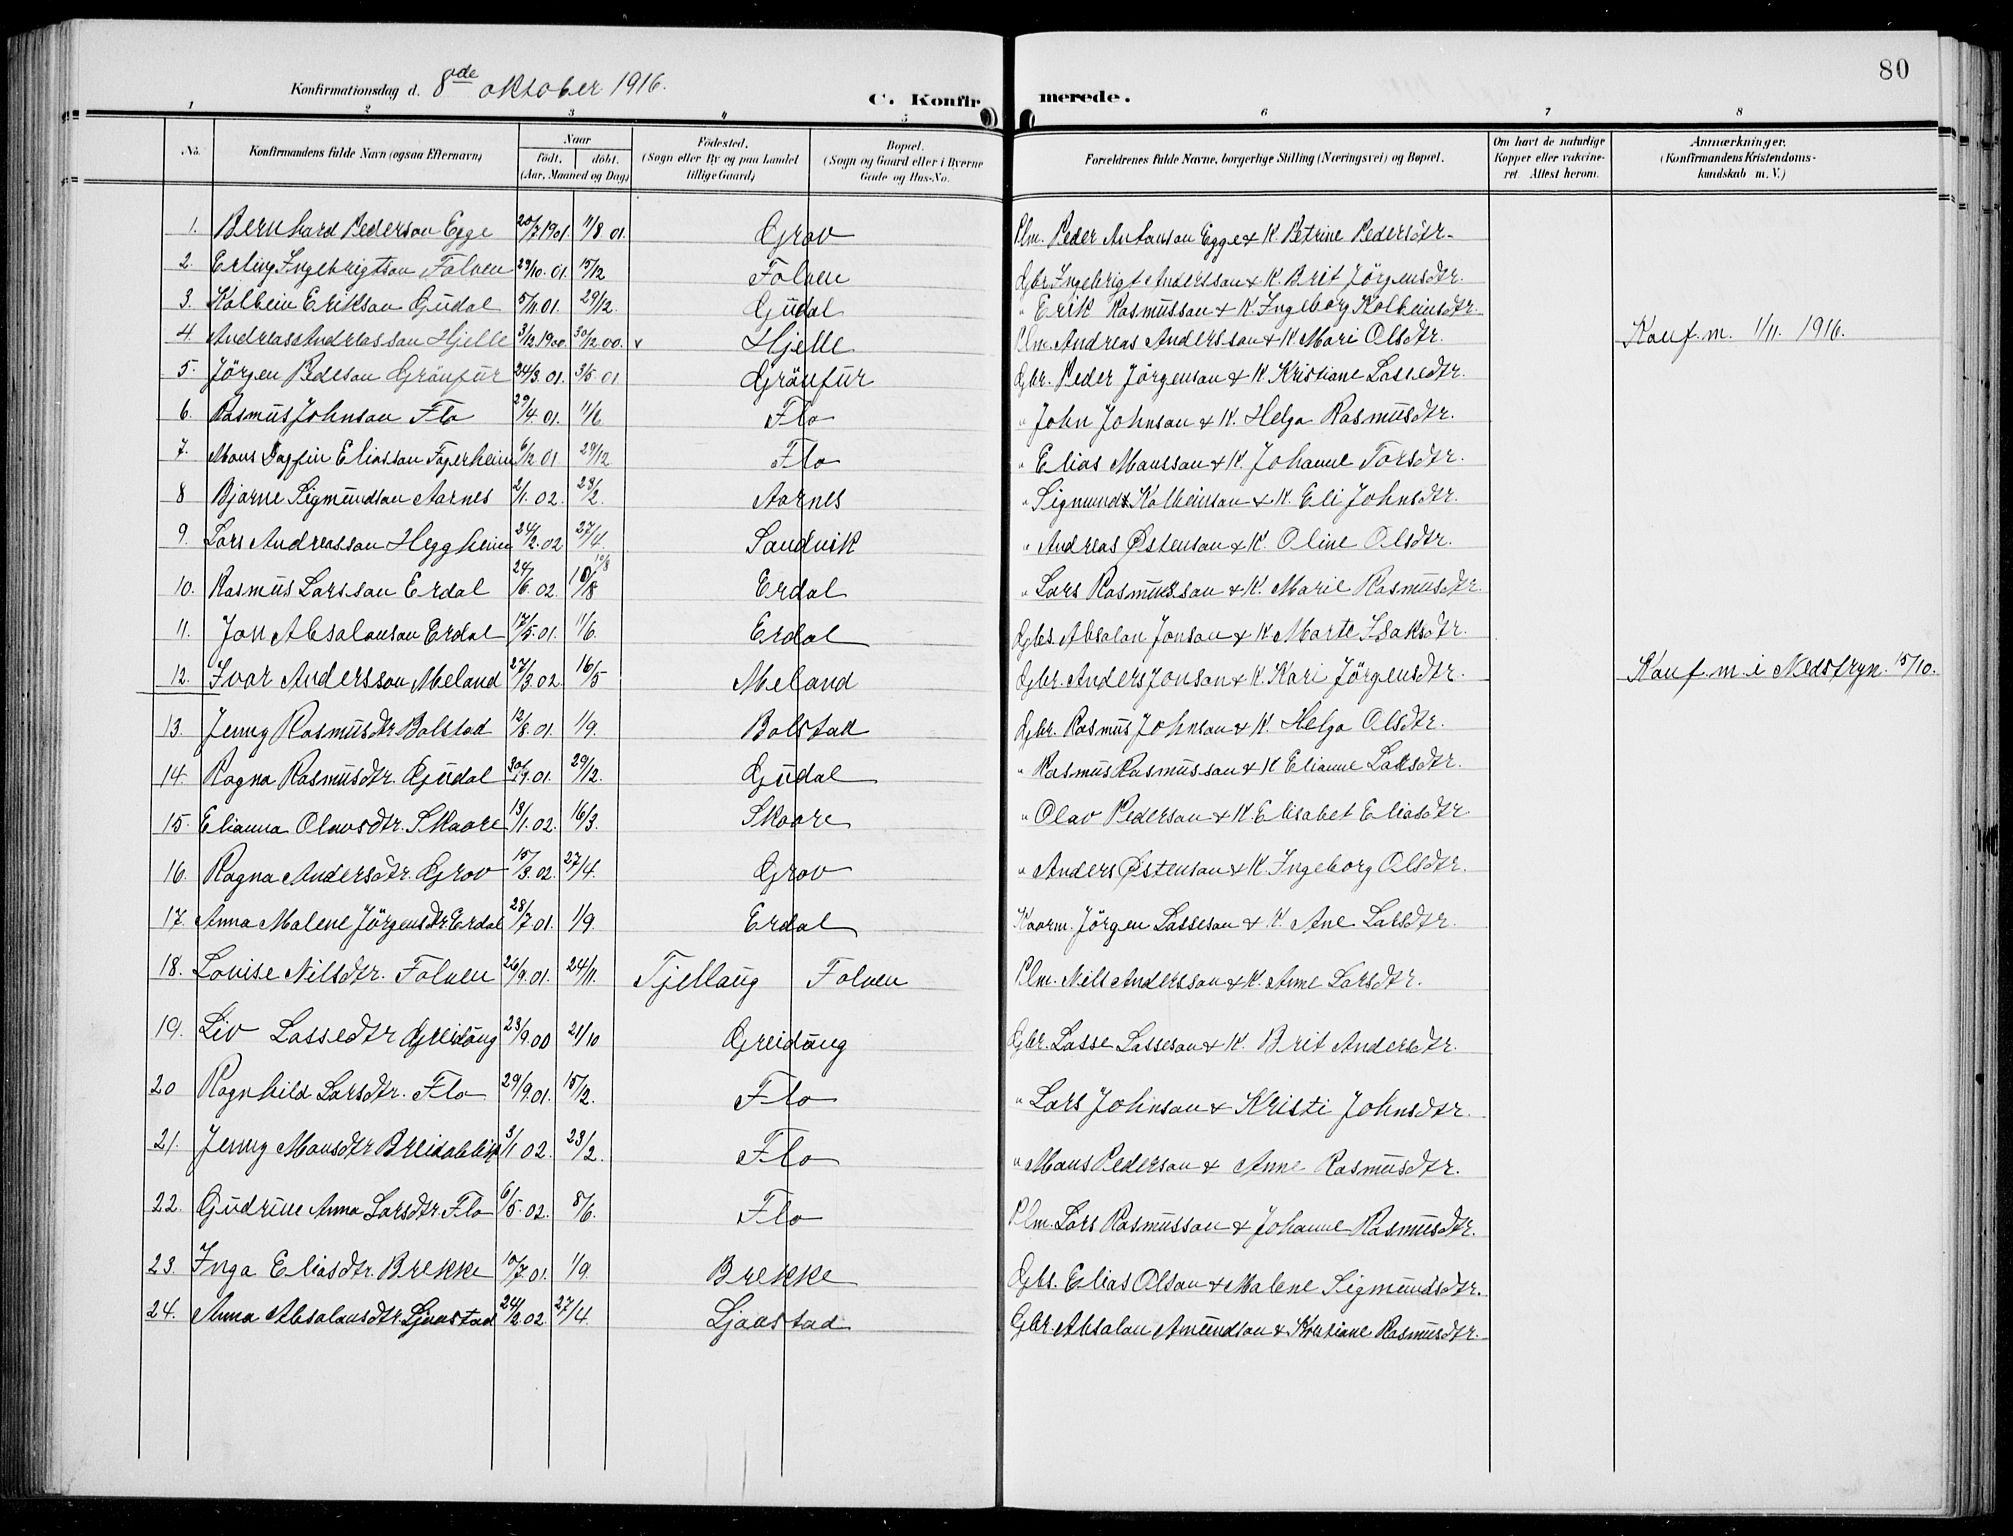 80
Konfirmationsdag d. 8de oktober 1916.
C. Konfirmerede.
1 2 3 4 5 6 7 8
No. Konfirmandens fulde Navn (ogsaa Efternavn) Naar födt. döbt. (Aar, Maaned og Dag) Födested. (Sogn eller By og paa Landet tillige Gaard) Bopæl. (Sogn og Gaard eller i Byerne Gade og Hus-No. Forældrenes fulde Navne, borgerlige Stilling (Næringsvei) og Bopæl. Om havt de naturlige Kopper eller vakcineret. Attest herom. Anmærkninger. (Konfirmandens Kristendomskundskab m. V.)
1. Bernhard Pederson Egge 20/7 1901. 11/8 01. Grov Plm. Peder Antonson Egge & K. Petrine Pedersdtr.
2. Erling Ingebrigtson Folven 29/10. 01. 15/12 Folven Gbr. Ingebrigt Andersson & K. Brit Jörgensdtr.
3. Kolbein Erikson Gjüdal 5/11. 01. 29/12. Gjüdal " Erik Rasmusson & K. Ingeborg Kolbeinsdtr.
4. Andreas Andreasson Hjelle 3/12 1900. 30/12 00. v Hjelle Plm. Andreas Andersson & K. Mari Olsdtr. Konf. m. 1/11. 1916.
5. Jörgen Pedeson Gränfür 24/3. 01. 3/5 01 Gränfür Gbr. Peder Jörgenson & K. Kristiane Lassedtr.
6. Rasmüs Johnson Flo 29/4. 01. 11/6 Flo " John Johnson & K. Helga Rasmüsdtr.
7. Mons Dagfin Eliasson Fagerheim 6/12 01 29/12 Flo " Elias Monsson & K. Johanne Torsdtr.
8 Bjarne Sigmündson Aarnes 2/1. 02. 23/2. Aarnes " Sigmund Kolbeinson & K. Eli Johnsdtr.
9. Lars Andreasson Heggheim 24/2. 02 27/4. Sandvik " Andreas Østenson & K. Oline Olsdtr.
10. Rasmüs Larsson Erdal 24/6. 02. 10/8 10/8 Erdal " Lars Rasmusson & K. Marie Rasmüsdtr.
11. Jon Absalonson Erdal 17/5. 01. 11/6. Erdal Gbs. Absalon Jonson & K. Marte Isaksdtr.
12. Ivar Andersson Meland 27/3. 02. 16/5 Meland Gbr. Anders Jonson & K. Kari Jörgensdtr. Konf. m. i Nedstryn. 15/10.
13. Jenny Rasmüsdtr. Bolstad 12/8. 01. 1/9. Bolstad Gbr. Rasmüs Johnson & K. Helga Olsdtr.
14. Ragna Rasmüsdtr. Gjüdal 30/11. 01. 29/12. Gjüdal " Rasmüs Rasmusson & K Elianne
15. Elianna Olavsdtr. Skaare 13/1. 02. 16/3. Skaare " Olav Pederson & K Elisabet Eliasdtr.
16. Ragna Andersdtr. Grov 15/3. 02. 27/4. Grov " Anders Østenson & K. Ingeborg Olsdtr.
17. Anna Malene Jörgensdtr. Erdal 28/7. 01. 1/9. Erdal Kaarm. Jörgen Lasseson & K. Ane Larsdtr.
18. Lovise Nilsdtr. Folven 26/9. 01. 24/11. Tjellaug Folven Plm. Nils Andersson & K. Anne Larsdtr.
19. Liv Lassedtr Greidüng 23/9. 00 21/10 Greidüng Gbr. Lasse Lasseson & K. Brit Andersdtr.
20 Ragnhild Larsdtr. Flo 29/9. 01. 15/12. Flo " Lars Johnson & Kristi Johnsdtr.
21. Jenny Monsdtr Breidablik 3/1 02. 23/2. Flo " Mons Pederson & Anne Rasmüsdtr.
22. Güdrun Anna Larsdtr. Flo 6/5. 02. 8/6. Flo Plm. Lars Rasmüsson & Johanne Rasmüsdtr.
23. Inga Eliasdtr. Brekke 10/7. 01. 1/9. Brekke Gbs. Elias Olson & Malene Sigmündsdtr.
24. Anna Absalonsdtr. Ljosstad 24/2. 02. 27/4. Ljosstad Gbr. Absalon Amündson & Kristiane Rasmüsdtr.